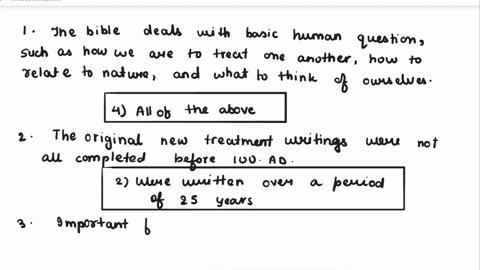 1. The bible deals with basic human question,
such as how we are to treat one another, how to
relate to nature, and what to think of ourselves.
4) All of the above
2. The original new treatment writings were not
all completed before 100. AD.
2) Were written over a period
of 25 years
3. Important